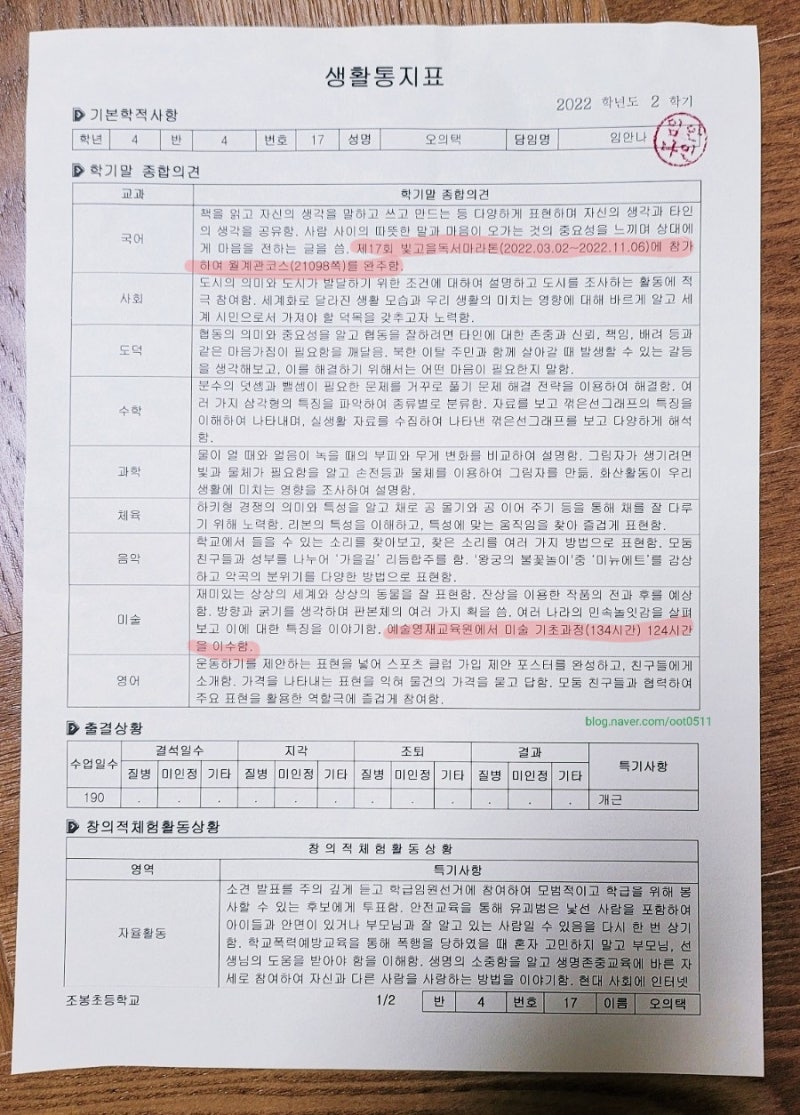 생활통지표
2022 학년도 2 학기
기본학적사항
학년 4 반 4 번호 17 성명 오의택 담임명 임안나
학기말 종합의견
교과 학기말 종합의견
국어
책을 읽고 자신의 생각을 말하고 쓰고 만드는 등 다양하게 표현하며 자신의 생각과 타인
의 생각을 공유함. 사람 사이의 따뜻한 말과 마음이 오가는 것의 중요성을 느끼며 상대에
게 마음을 전하는 글을 씀. 제17회 빛고을독서마라톤(2022.03.02~2022.11.06)에 참가
하여 월계관코스(21098쪽)를 완주함.
사회
도시의 의미와 도시가 발달하기 위한 조건에 대하여 설명하고 도시를 조사하는 활동에 적
극 참여함. 세계화로 달라진 생활 모습과 우리 생활의 미치는 영향에 대해 바르게 알고 세
계 시민으로서 가져야 할 덕목을 갖추고자 노력함.
도덕
협동의 의미와 중요성을 알고 협동을 잘하려면 타인에 대한 존중과 신뢰, 책임, 배려 등과
같은 마음가짐이 필요함을 깨달음. 북한 이탈 주민과 함께 살아갈 때 발생할 수 있는 갈등
을 생각해보고, 이를 해결하기 위해서는 어떤 마음이 필요한지 말함.
수학
분수의 덧셈과 뺄셈이 필요한 문제를 거꾸로 풀기 문제 해결 전략을 이용하여 해결함. 여
러 가지 삼각형의 특징을 파악하여 종류별로 분류함. 자료를 보고 꺾은선그래프의 특징을
이해하여 나타내며, 실생활 자료를 수집하여 나타낸 꺾은선그래프를 보고 다양하게 해석
함.
과학
물이 얼 때와 얼음이 녹을 때의 부피와 무게 변화를 비교하여 설명함. 그림자가 생기려면
빛과 물체가 필요함을 알고 손전등과 물체를 이용하여 그림자를 만듦. 화산활동이 우리
생활에 미치는 영향을 조사하여 설명함.
체육
하키형 경쟁의 의미와 특성을 알고 채로 공 몰기와 공 이어 주기 등을 통해 채를 잘 다루
기 위해 노력함. 리본의 특성을 이해하고, 특성에 맞는 움직임을 찾아 즐겁게 표현함.
음악
학교에서 들을 수 있는 소리를 찾아보고, 찾은 소리를 여러 가지 방법으로 표현함. 모둠
친구들과 성부를 나누어 '가을길' 리듬합주를 함. '왕궁의 불꽃놀이'중 '미뉴에트'를 감상
하고 악곡의 분위기를 다양한 방법으로 표현함.
미술
재미있는 상상의 세계와 상상의 동물을 잘 표현함. 잔상을 이용한 작품의 전과 후를 예상
함. 방향과 굵기를 생각하며 판본체의 여러 가지 획을 씀. 여러 나라의 민속놀잇감을 살펴
보고 이에 대한 특징을 이야기함. 예술영재교육원에서 미술 기초과정(134시간) 124시간
을 이수함.
영어
운동하기를 제안하는 표현을 넣어 스포츠 클럽 가입 제안 포스터를 완성하고, 친구들에게
소개함. 가격을 나타내는 표현을 익혀 물건의 가격을 묻고 답함. 모둠 친구들과 협력하여
주요 표현을 활용한 역할극에 즐겁게 참여함.
blog.naver.com/oot0511
출결상황
수업일수 결석일수 지각 조퇴 결과 특기사항
질병 미인정 기타 질병 미인정 기타 질병 미인정 기타 질병 미인정 기타
190 . . . . . . . . . . . . 개근
창의적체험활동상황
창의적체험활동상황
영역 특기사항
자율활동
소견 발표를 주의 깊게 듣고 학급임원선거에 참여하여 모범적이고 학급을 위해 봉
사할 수 있는 후보에게 투표함. 안전교육을 통해 유괴범은 낯선 사람을 포함하여
아이들과 안면이 있거나 부모님과 잘 알고 있는 사람일 수 있음을 다시 한 번 상기
함. 학교폭력예방교육을 통해 폭행을 당하였을 때 혼자 고민하지 말고 부모님, 선
생님의 도움을 받아야 함을 이해함. 생명의 소중함을 알고 생명존중교육에 바른 자
세로 참여하여 자신과 다른 사람을 사랑하는 방법을 이야기함. 현대 사회에 인터넷
조봉초등학교 1/2 반 4 번호 17 이름 오의택